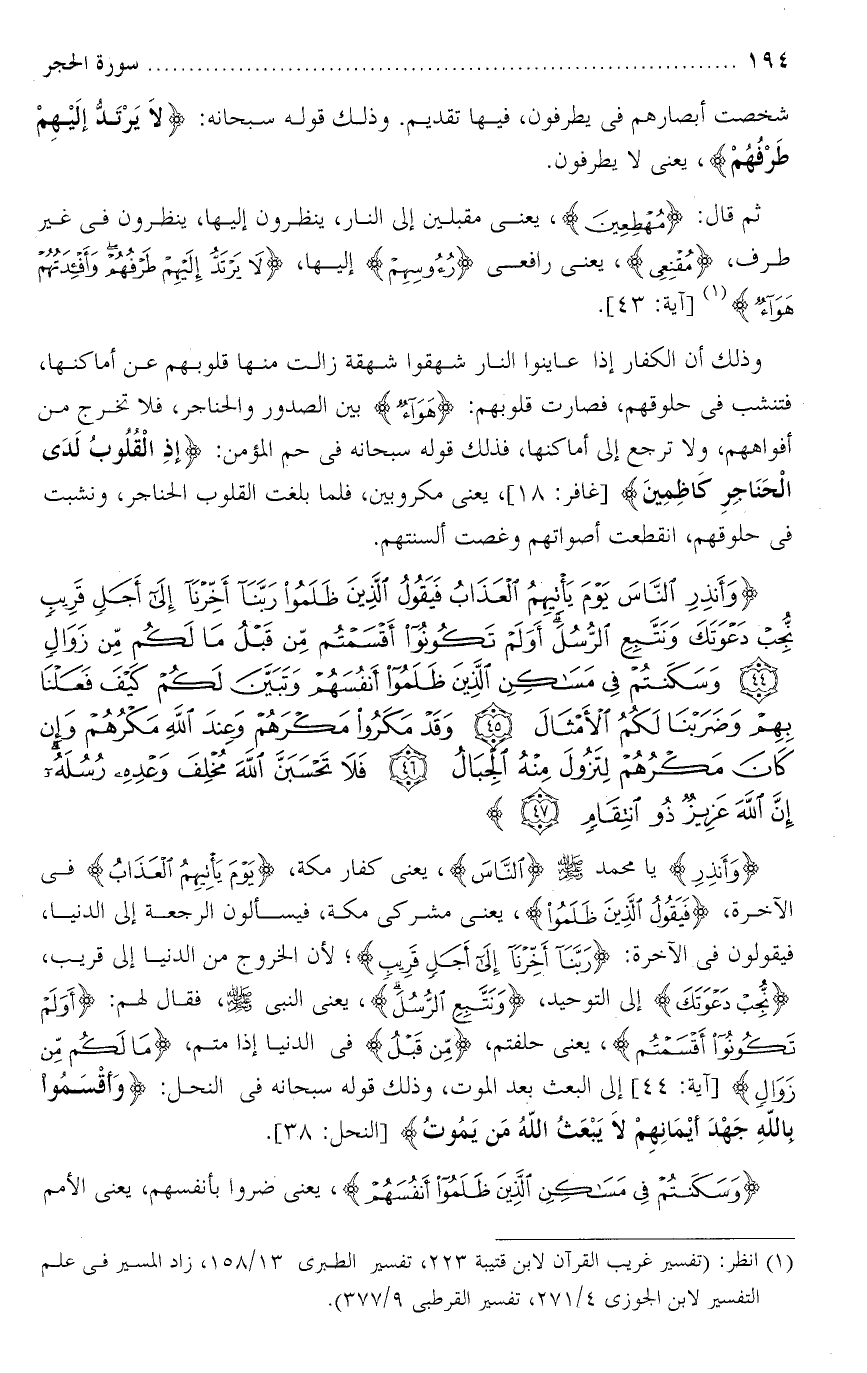 ١٩٤ ........................................................................ سورة الحجر
شخصت أبصارهم فى يطرفون، فيها تقديم. وذلك قوله سبحانه: ﴿لاَ يَرْتَدُّ إِلَيْهِمْ
طَرْفُهُمْ﴾، يعنى لا يطرفون.
ثم قال: ﴿مُهْطِعِينَ﴾، يعنى مقبلين إلى النار، ينظرون إليها، ينظرون فى غير
طرف، ﴿مُقْنِعِى﴾، يعنى رافعى ﴿رُءُوسِهِمْ﴾ إليها، ﴿لَا يَرْتَدُّ إِلَيْهِمْ طَرْفُهُمْ ۖ وَأَفْـِٔدَتُهُمْ
هَوَآءٌ﴾(١) [آية: ٤٣].
وذلك أن الكفار إذا عاينوا النار شهقوا شهقة زالت منها قلوبهم عن أماكنها،
فتنشب فى حلوقهم، فصارت قلوبهم: ﴿هَوَآءٌ﴾ بين الصدور والحناجر، فلا تخرج من
أفواههم، ولا ترجع إلى أماكنها، فذلك قوله سبحانه فى حم المؤمن: ﴿إِذِ الْقُلُوبُ لَدَى
الْحَنَاجِرِ كَاظِمِينَ﴾ [غافر: ١٨]، يعنى مكروبين، فلما بلغت القلوب الحناجر، ونشبت
فى حلوقهم، انقطعت أصواتهم وغصت ألسنتهم.
﴿وَأَنذِرِ ٱلنَّاسَ يَوْمَ يَأْتِيهِمُ ٱلْعَذَابُ فَيَقُولُ ٱلَّذِينَ ظَلَمُوا۟ رَبَّنَآ أَخِّرْنَآ إِلَىٰٓ أَجَلٍ قَرِيبٍ
نُّجِبْ دَعْوَتَكَ وَنَتَّبِعِ ٱلرُّسُلَ ۗ أَوَلَمْ تَكُونُوٓا۟ أَقْسَمْتُم مِّن قَبْلُ مَا لَكُم مِّن زَوَالٍ
(٤٤) وَسَكَنتُمْ فِى مَسَـٰكِنِ ٱلَّذِينَ ظَلَمُوٓا۟ أَنفُسَهُمْ وَتَبَيَّنَ لَكُمْ كَيْفَ فَعَلْنَا
بِهِمْ وَضَرَبْنَا لَكُمُ ٱلْأَمْثَالَ (٤٥) وَقَدْ مَكَرُوا۟ مَكْرَهُمْ وَعِندَ ٱللَّهِ مَكْرُهُمْ وَإِن
كَانَ مَكْرُهُمْ لِتَزُولَ مِنْهُ ٱلْجِبَالُ (٤٦) فَلَا تَحْسَبَنَّ ٱللَّهَ مُخْلِفَ وَعْدِهِۦ رُسُلَهُۥٓ ۗ
إِنَّ ٱللَّهَ عَزِيزٌ ذُو ٱنتِقَامٍ (٤٧)﴾
﴿وَأَنذِرِ﴾ يا محمد ﷺ ﴿ٱلنَّاسَ﴾، يعنى كفار مكة، ﴿يَوْمَ يَأْتِيهِمُ ٱلْعَذَابُ﴾ فى
الآخرة، ﴿فَيَقُولُ ٱلَّذِينَ ظَلَمُوا۟﴾، يعنى مشركى مكة، فيسألون الرجعة إلى الدنيا،
فيقولون فى الآخرة: ﴿رَبَّنَآ أَخِّرْنَآ إِلَىٰٓ أَجَلٍ قَرِيبٍ﴾؛ لأن الخروج من الدنيا إلى قريب،
﴿نُّجِبْ دَعْوَتَكَ﴾ إلى التوحيد، ﴿وَنَتَّبِعِ ٱلرُّسُلَ ۗ﴾، يعنى النبى ﷺ، فقال لهم: ﴿أَوَلَمْ
تَكُونُوٓا۟ أَقْسَمْتُم﴾، يعنى حلفتم، ﴿مِّن قَبْلُ﴾ فى الدنيا إذا متم، ﴿مَا لَكُم مِّن
زَوَالٍ﴾ [آية: ٤٤] إلى البعث بعد الموت، وذلك قوله سبحانه فى النحل: ﴿وَأَقْسَمُواْ
بِاللّهِ جَهْدَ أَيْمَانِهِمْ لاَ يَبْعَثُ اللّهُ مَن يَمُوتُ﴾ [النحل: ٣٨].
﴿وَسَكَنتُمْ فِى مَسَـٰكِنِ ٱلَّذِينَ ظَلَمُوٓا۟ أَنفُسَهُمْ﴾، يعنى ضروا بأنفسهم، يعنى الأمم
(١) انظر: (تفسير غريب القرآن لابن قتيبة ٢٢٣، تفسير الطبرى ١٥٨/١٣، زاد المسير فى علم
التفسير لابن الجوزى ٢٧١/٤، تفسير القرطبى ٣٧٧/٩).